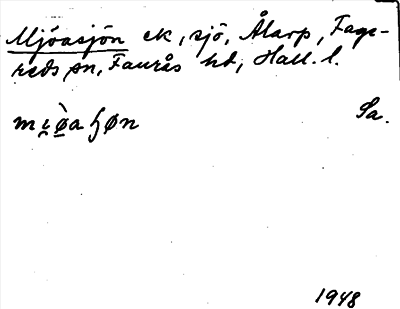 Mjöasjön ck, sjö, Ålarp, Fage-
reds sn, Faurås hd, Hall. l.
mi̯ø̀aɧøn Sa.
1948